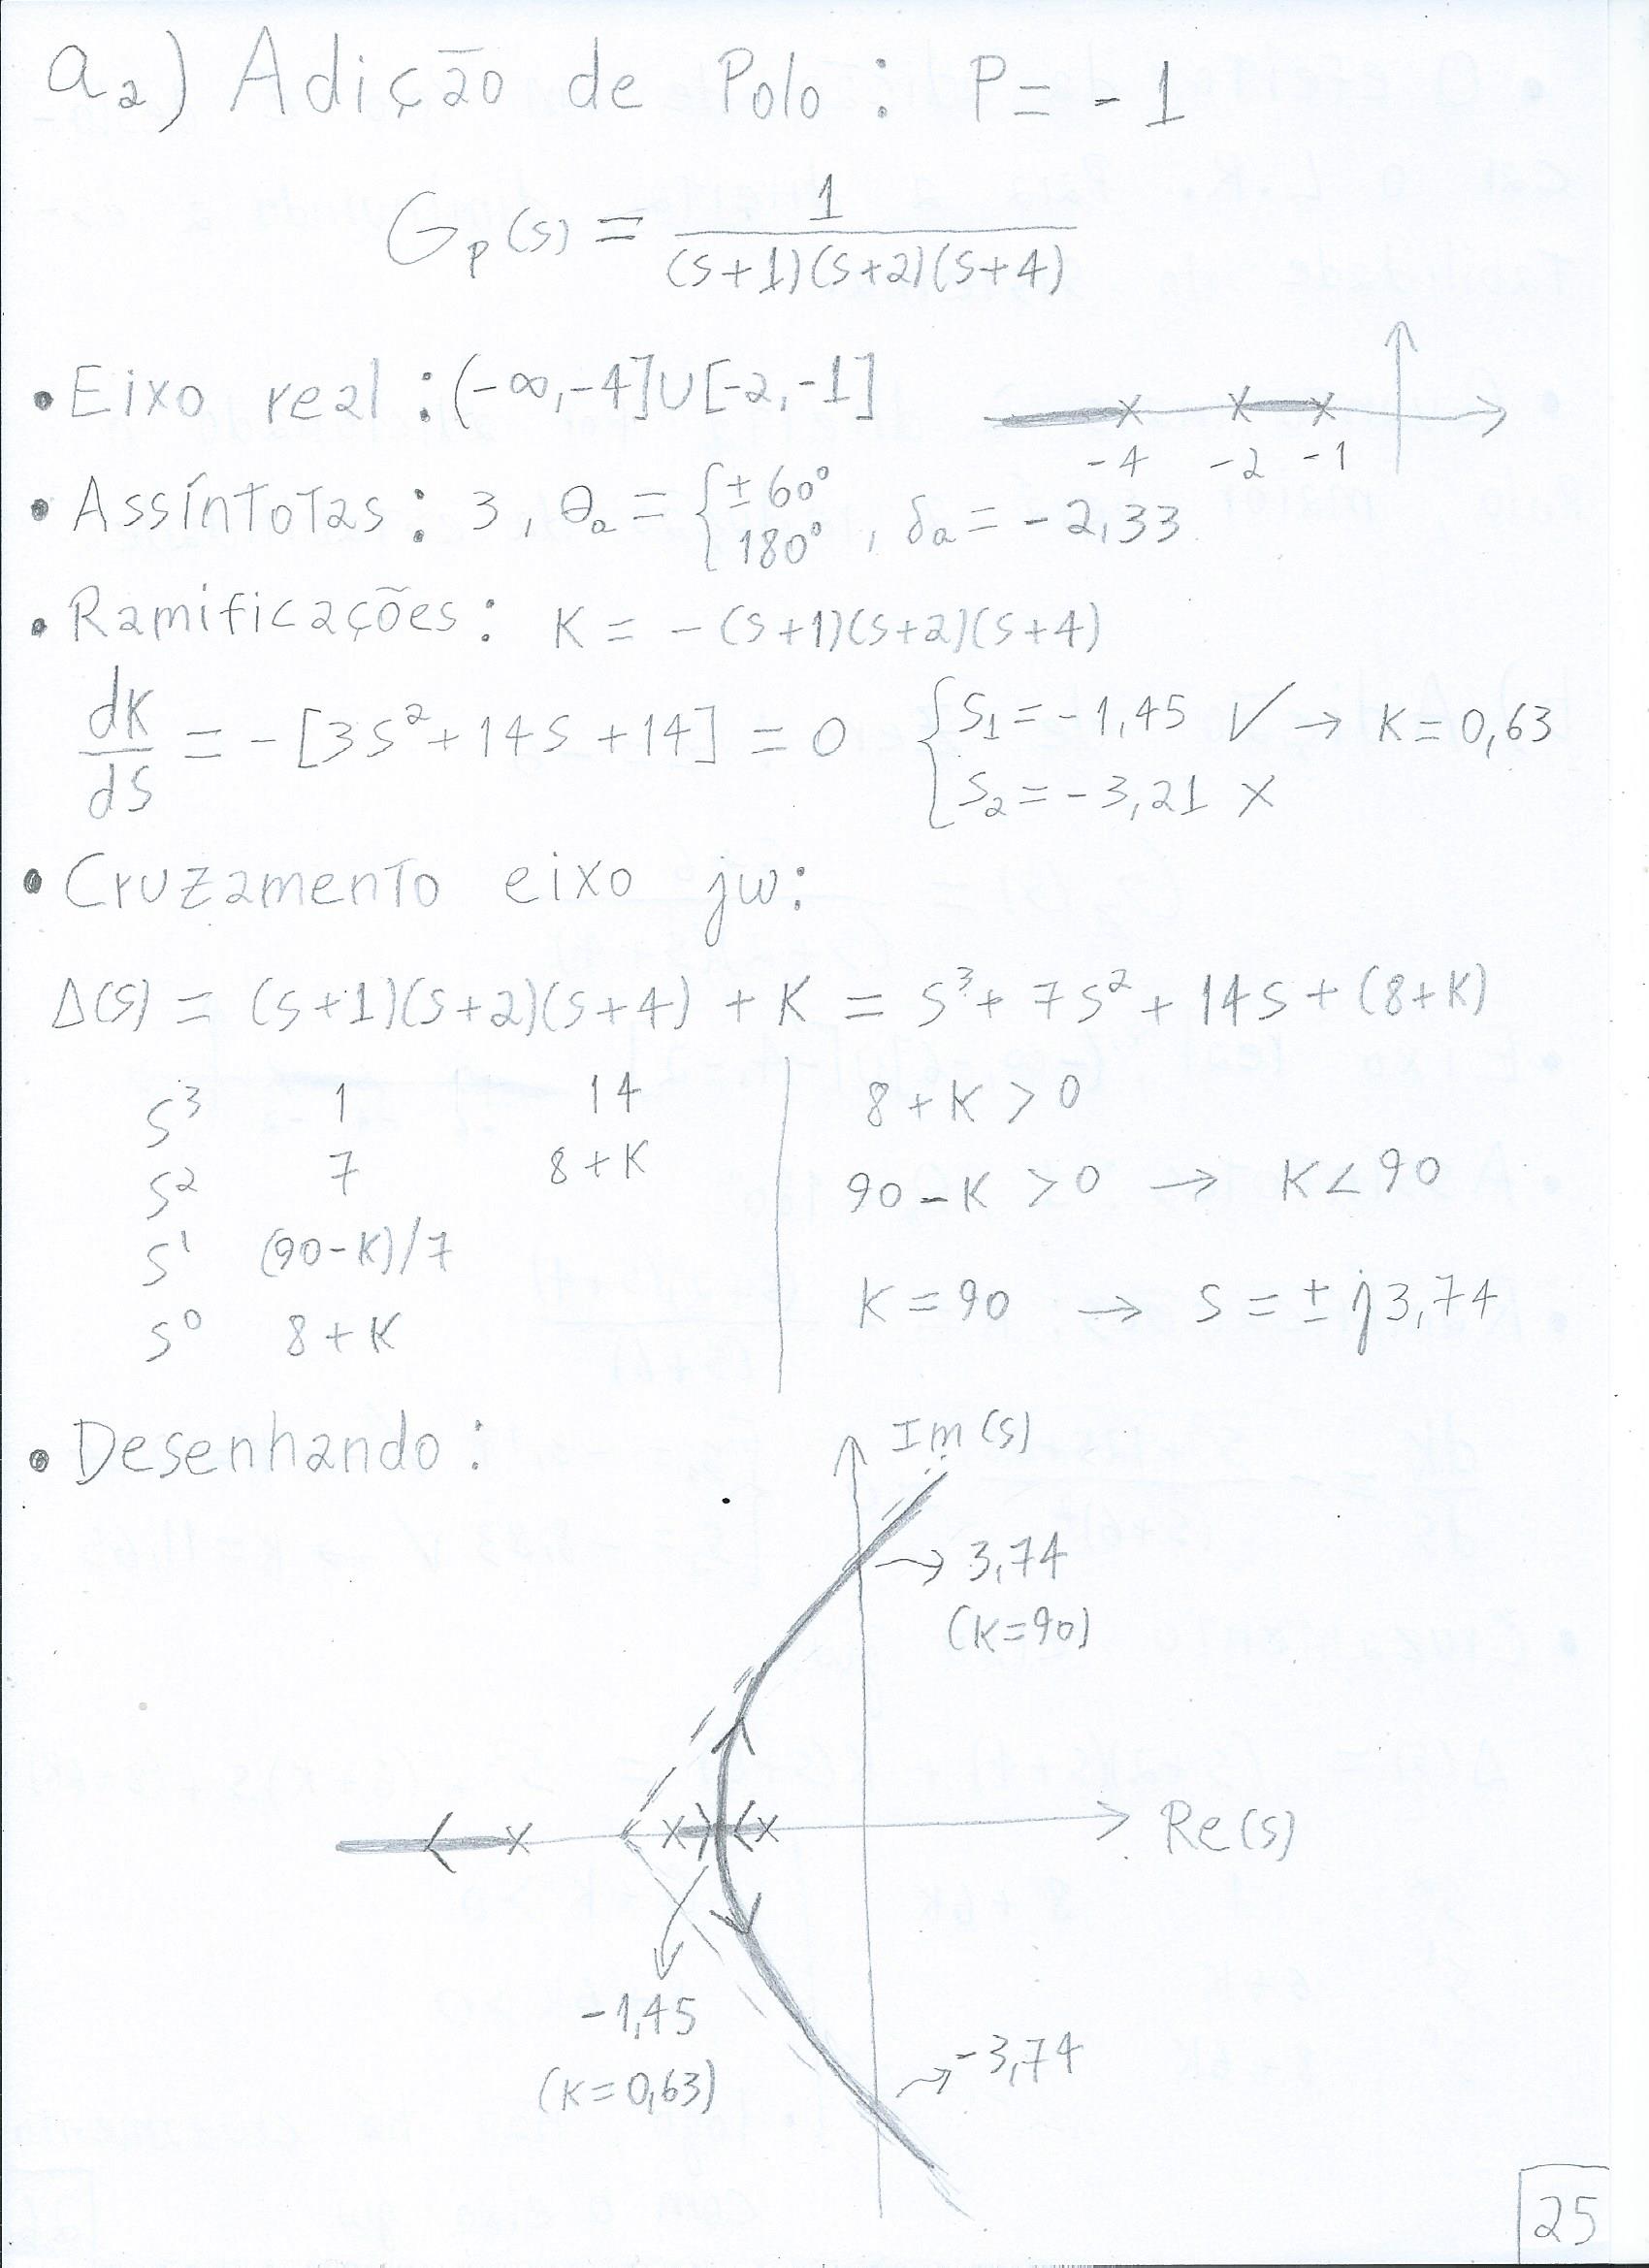 a₂) Adição de Polo: P = -1
Gₚ(s) = 1 / (s+1)(s+2)(s+4)
• Eixo real: (-∞,-4]∪[-2,-1]
-4 -2 -1
• Assíntotas: 3, θₐ = { ±60° 180° , δₐ = -2,33
• Ramificações: K = -(s+1)(s+2)(s+4)
dK/ds = -[3s²+14s+14] = 0 { s₁ = -1,45 ✓ → K = 0,63
s₂ = -3,21 x
• Cruzamento eixo jw:
Δ(s) = (s+1)(s+2)(s+4) + K = s³ + 7s² + 14s + (8+K)
s³ 1 14
s² 7 8+K
s¹ (90-K)/7
s⁰ 8+K
8+K > 0
90-K > 0 → K < 90
K = 90 → s = ± j3,74
• Desenhando:
Im(s)
→ 3,74
(K=90)
Re(s)
-1,45
(K=0,63)
→ -3,74
25